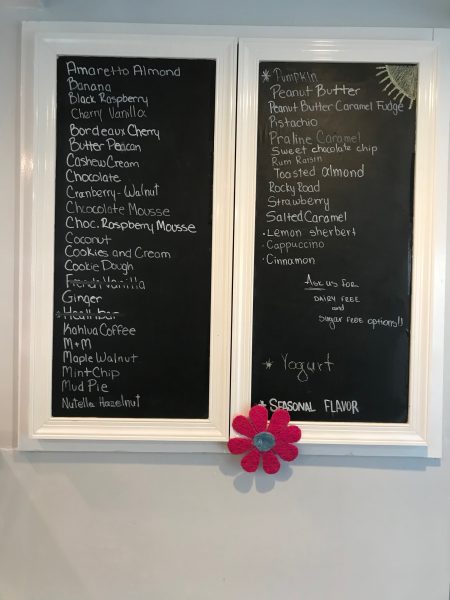 Amaretto Almond
Banana
Black Raspberry
Cherry Vanilla
Bordeaux Cherry
Butter Peacan
Cashew Cream
Chocolate
Cranberry-Walnut
Chocolate Mousse
Choc. Raspberry Mousse
Coconut
Cookies and Cream
Cookie Dough
French Vanilla
Ginger
* Heathbar
Kahlua Coffee
M+M
Maple Walnut
Mint Chip
Mud Pie
Nutella Hazelnut
* Pumpkin
Peanut Butter
Peanut Butter Caramel Fudge
Pistachio
Praline Caramel
Sweet chocolate chip
Rum Raisin
Toasted almond
Rocky Road
Strawberry
Salted Caramel
· Lemon sherbert
· Cappuccino
· Cinnamon
Ask us for
DAIRY FREE
and
Sugar FREE options!!
* Yogurt
* SEASONAL FLAVOR